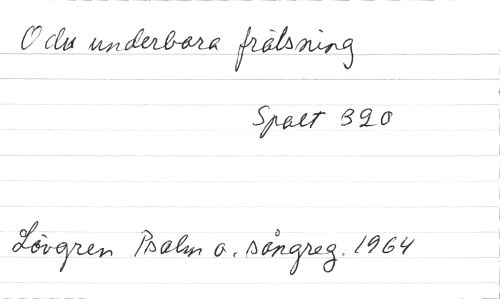 O du underbara frälsning
Spalt 320
Lövgren Psalm o. sångreg. 1964